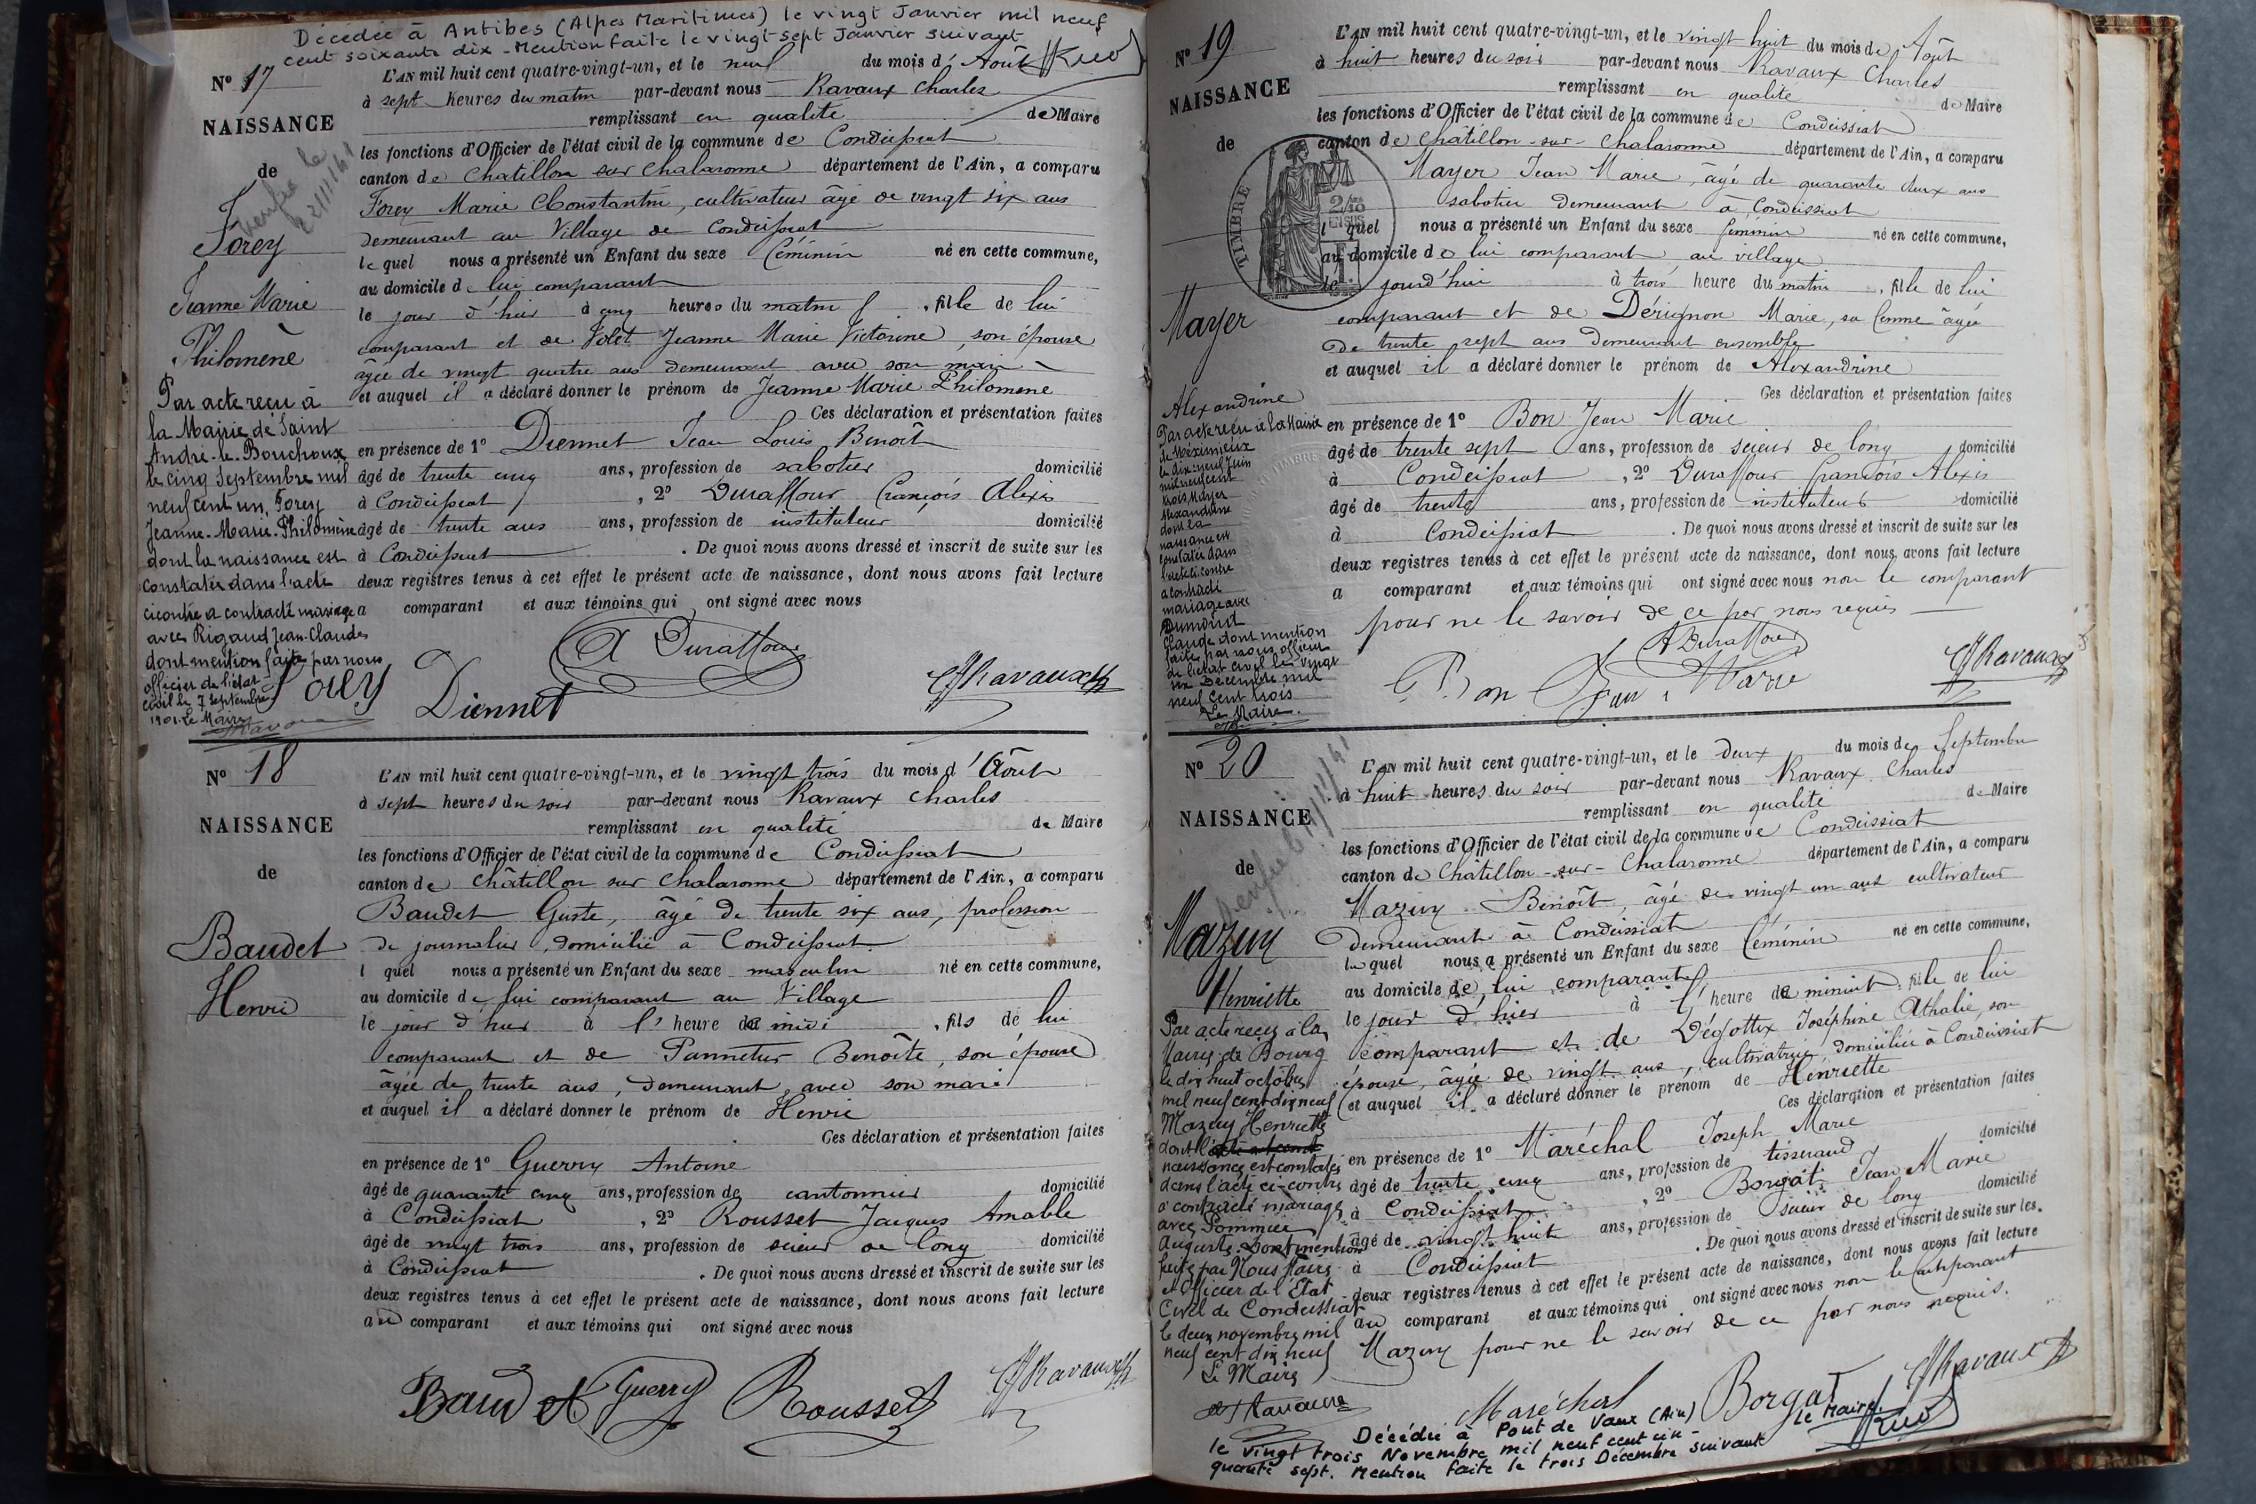 Décédée à Antibes (Alpes Maritimes) le vingt Janvier mil neuf
cent soixante dix - Mention faite le vingt-sept Janvier suivant
N° 17
NAISSANCE
de
Forey
Jeanne Marie
Philomène
Par acte reçu à
la Mairie de Saint
André-le-Bouchoux
le cinq Septembre mil
neuf cent un, Forey
Jeanne-Marie-Philomène
dont la naissance est
constatée dans l'acte
ci contre a contracté mariage
avec Rigaud Jean-Claude
dont mention faite par nous
officier de l'état
civil le 7 Septembre
1901. Le Maire
L'AN mil huit cent quatre-vingt-un, et le neuf du mois d'Août
à sept heures du matin par-devant nous Ravaux Charles
remplissant en qualité de Maire
les fonctions d'Officier de l'état civil de la commune de Condeissiat
canton de Chatillon sur Chalaronne département de l'Ain, a comparu
Forey Marie Constantin, cultivateur âgé de vingt six ans
demeurant au Village de Condeissiat
lequel nous a présenté un Enfant du sexe féminin né en cette commune,
au domicile de lui comparant
le jour d'hier à cinq heures du matin, fille de lui
comparant et de Volet Jeanne Marie Victorine, son épouse
âgée de vingt quatre ans demeurant avec son mari
et auquel il a déclaré donner le prénom de Jeanne Marie Philomène
Ces déclaration et présentation faites
en présence de 1° Diennet Jean Louis Benoît
âgé de trente cinq ans, profession de sabotier domicilié
à Condeissiat, 2° Duraffour François Alexis
âgé de trente ans ans, profession de instituteur domicilié
à Condeissiat. De quoi nous avons dressé et inscrit de suite sur les
deux registres tenus à cet effet le présent acte de naissance, dont nous avons fait lecture
a comparant et aux témoins qui ont signé avec nous
A Duraffour
Forey Diennet Ravaux
N° 18
NAISSANCE
de
Baudet
Henri
L'AN mil huit cent quatre-vingt-un, et le vingt trois du mois d'Août
à sept heures du soir par-devant nous Ravaux Charles
remplissant en qualité de Maire
les fonctions d'Officier de l'état civil de la commune de Condeissiat
canton de Châtillon sur Chalaronne département de l'Ain, a comparu
Baudet Guste, âgé de trente six ans, profession
de journalier, domicilié à Condeissiat.
l quel nous a présenté un Enfant du sexe masculin né en cette commune,
au domicile de lui comparant au Village
le jour d'hier à l'heure de midi, fils de lui
comparant et de Pannetier Benoîte, son épouse
âgée de trente ans, demeurant avec son mari
et auquel il a déclaré donner le prénom de Henri
Ces déclaration et présentation faites
en présence de 1° Guerry Antoine
âgé de quarante cinq ans, profession de cantonnier domicilié
à Condeissiat, 2° Rousset Jacques Amable
âgé de vingt trois ans, profession de scieur de long domicilié
à Condeissiat. De quoi nous avons dressé et inscrit de suite sur les
deux registres tenus à cet effet le présent acte de naissance, dont nous avons fait lecture
au comparant et aux témoins qui ont signé avec nous
Baudet Guerry Rousset Ravaux
N° 19
NAISSANCE
de
TIMBRE
Mayer
Alexandrine
Par acte reçu à la Mairie
de Meximieux
le dix-neuf Juin
mil neuf cent
trois Mayer
Alexandrine
dont la
naissance est
constatée dans
l'acte ci-contre
a contracté
mariage avec
Dumond
Claude dont mention
faite par nous officier
de l'état civil le vingt
six Décembre mil
neuf cent trois
Le Maire.
L'AN mil huit cent quatre-vingt-un, et le vingt huit du mois de Août
à huit heures du soir par-devant nous Ravaux Charles
remplissant en qualité de Maire
les fonctions d'Officier de l'état civil de la commune de Condeissiat
canton de Châtillon-sur-Chalaronne département de l'Ain, a comparu
Mayer Jean Marie, âgé de quarante deux ans
sabotier demeurant à Condeissiat
l quel nous a présenté un Enfant du sexe féminin né en cette commune,
au domicile de lui comparant au village
le jourd'hui à trois heure du matin, fille de lui
comparant et de Dérignon Marie, sa femme âgée
de trente sept ans demeurant ensemble
et auquel il a déclaré donner le prénom de Alexandrine
Ces déclaration et présentation faites
en présence de 1° Bon Jean Marie
âgé de trente sept ans, profession de scieur de long domicilié
à Condeissiat, 2° Duraffour François Alexis
âgé de trente ans, profession de instituteur domicilié
à Condeissiat. De quoi nous avons dressé et inscrit de suite sur les
deux registres tenus à cet effet le présent acte de naissance, dont nous avons fait lecture
a comparant et aux témoins qui ont signé avec nous non le comparant
pour ne le savoir de ce par nous requis
A Duraffour
Bon Jean Marie Ravaux
N° 20
NAISSANCE
de
Mazuy
Henriette
Par acte reçu à la
Mairie de Bourg
le dix huit octobre
mil neuf cent dix neuf
Mazuy Henriette
dont la
naissance est constatée
dans l'acte ci-contre
a contracté mariage
avec Pommier
Auguste. Dont mention
faite par Nous Maire
et Officier de l'Etat
Civil de Condeissiat
le deux novembre mil
neuf cent dix neuf
Le Maire
L'AN mil huit cent quatre-vingt-un, et le deux du mois de Septembre
à huit heures du soir par-devant nous Ravaux Charles
remplissant en qualité de Maire
les fonctions d'Officier de l'état civil de la commune de Condeissiat
canton de Châtillon-sur-Chalaronne département de l'Ain, a comparu
Mazuy Benoît, âgé de vingt un ans cultivateur
demeurant à Condeissiat
lequel nous a présenté un Enfant du sexe féminin né en cette commune,
au domicile de lui comparant
le jour d'hier à l'heure de minuit, fille de lui
comparant et de Joséphine Athalie, son
épouse, âgée de vingt ans, cultivatrice, domiciliée à Condeissiat
et auquel il a déclaré donner le prénom de Henriette
Ces déclaration et présentation faites
en présence de 1° Maréchal Joseph Marie
âgé de trente cinq ans, profession de tisserand domicilié
à Condeissiat, 2° Borgat Jean Marie
âgé de vingt huit ans, profession de scieur de long domicilié
à Condeissiat. De quoi nous avons dressé et inscrit de suite sur les
deux registres tenus à cet effet le présent acte de naissance, dont nous avons fait lecture
au comparant et aux témoins qui ont signé avec nous non le comparant
Mazuy pour ne le savoir de ce par nous requis.
Maréchal Borgat Ravaux
Décédée à Pont de Vaux (Ain) Le Maire
le vingt trois Novembre mil neuf cent cin-
quante sept. Mention faite le trois Décembre suivant